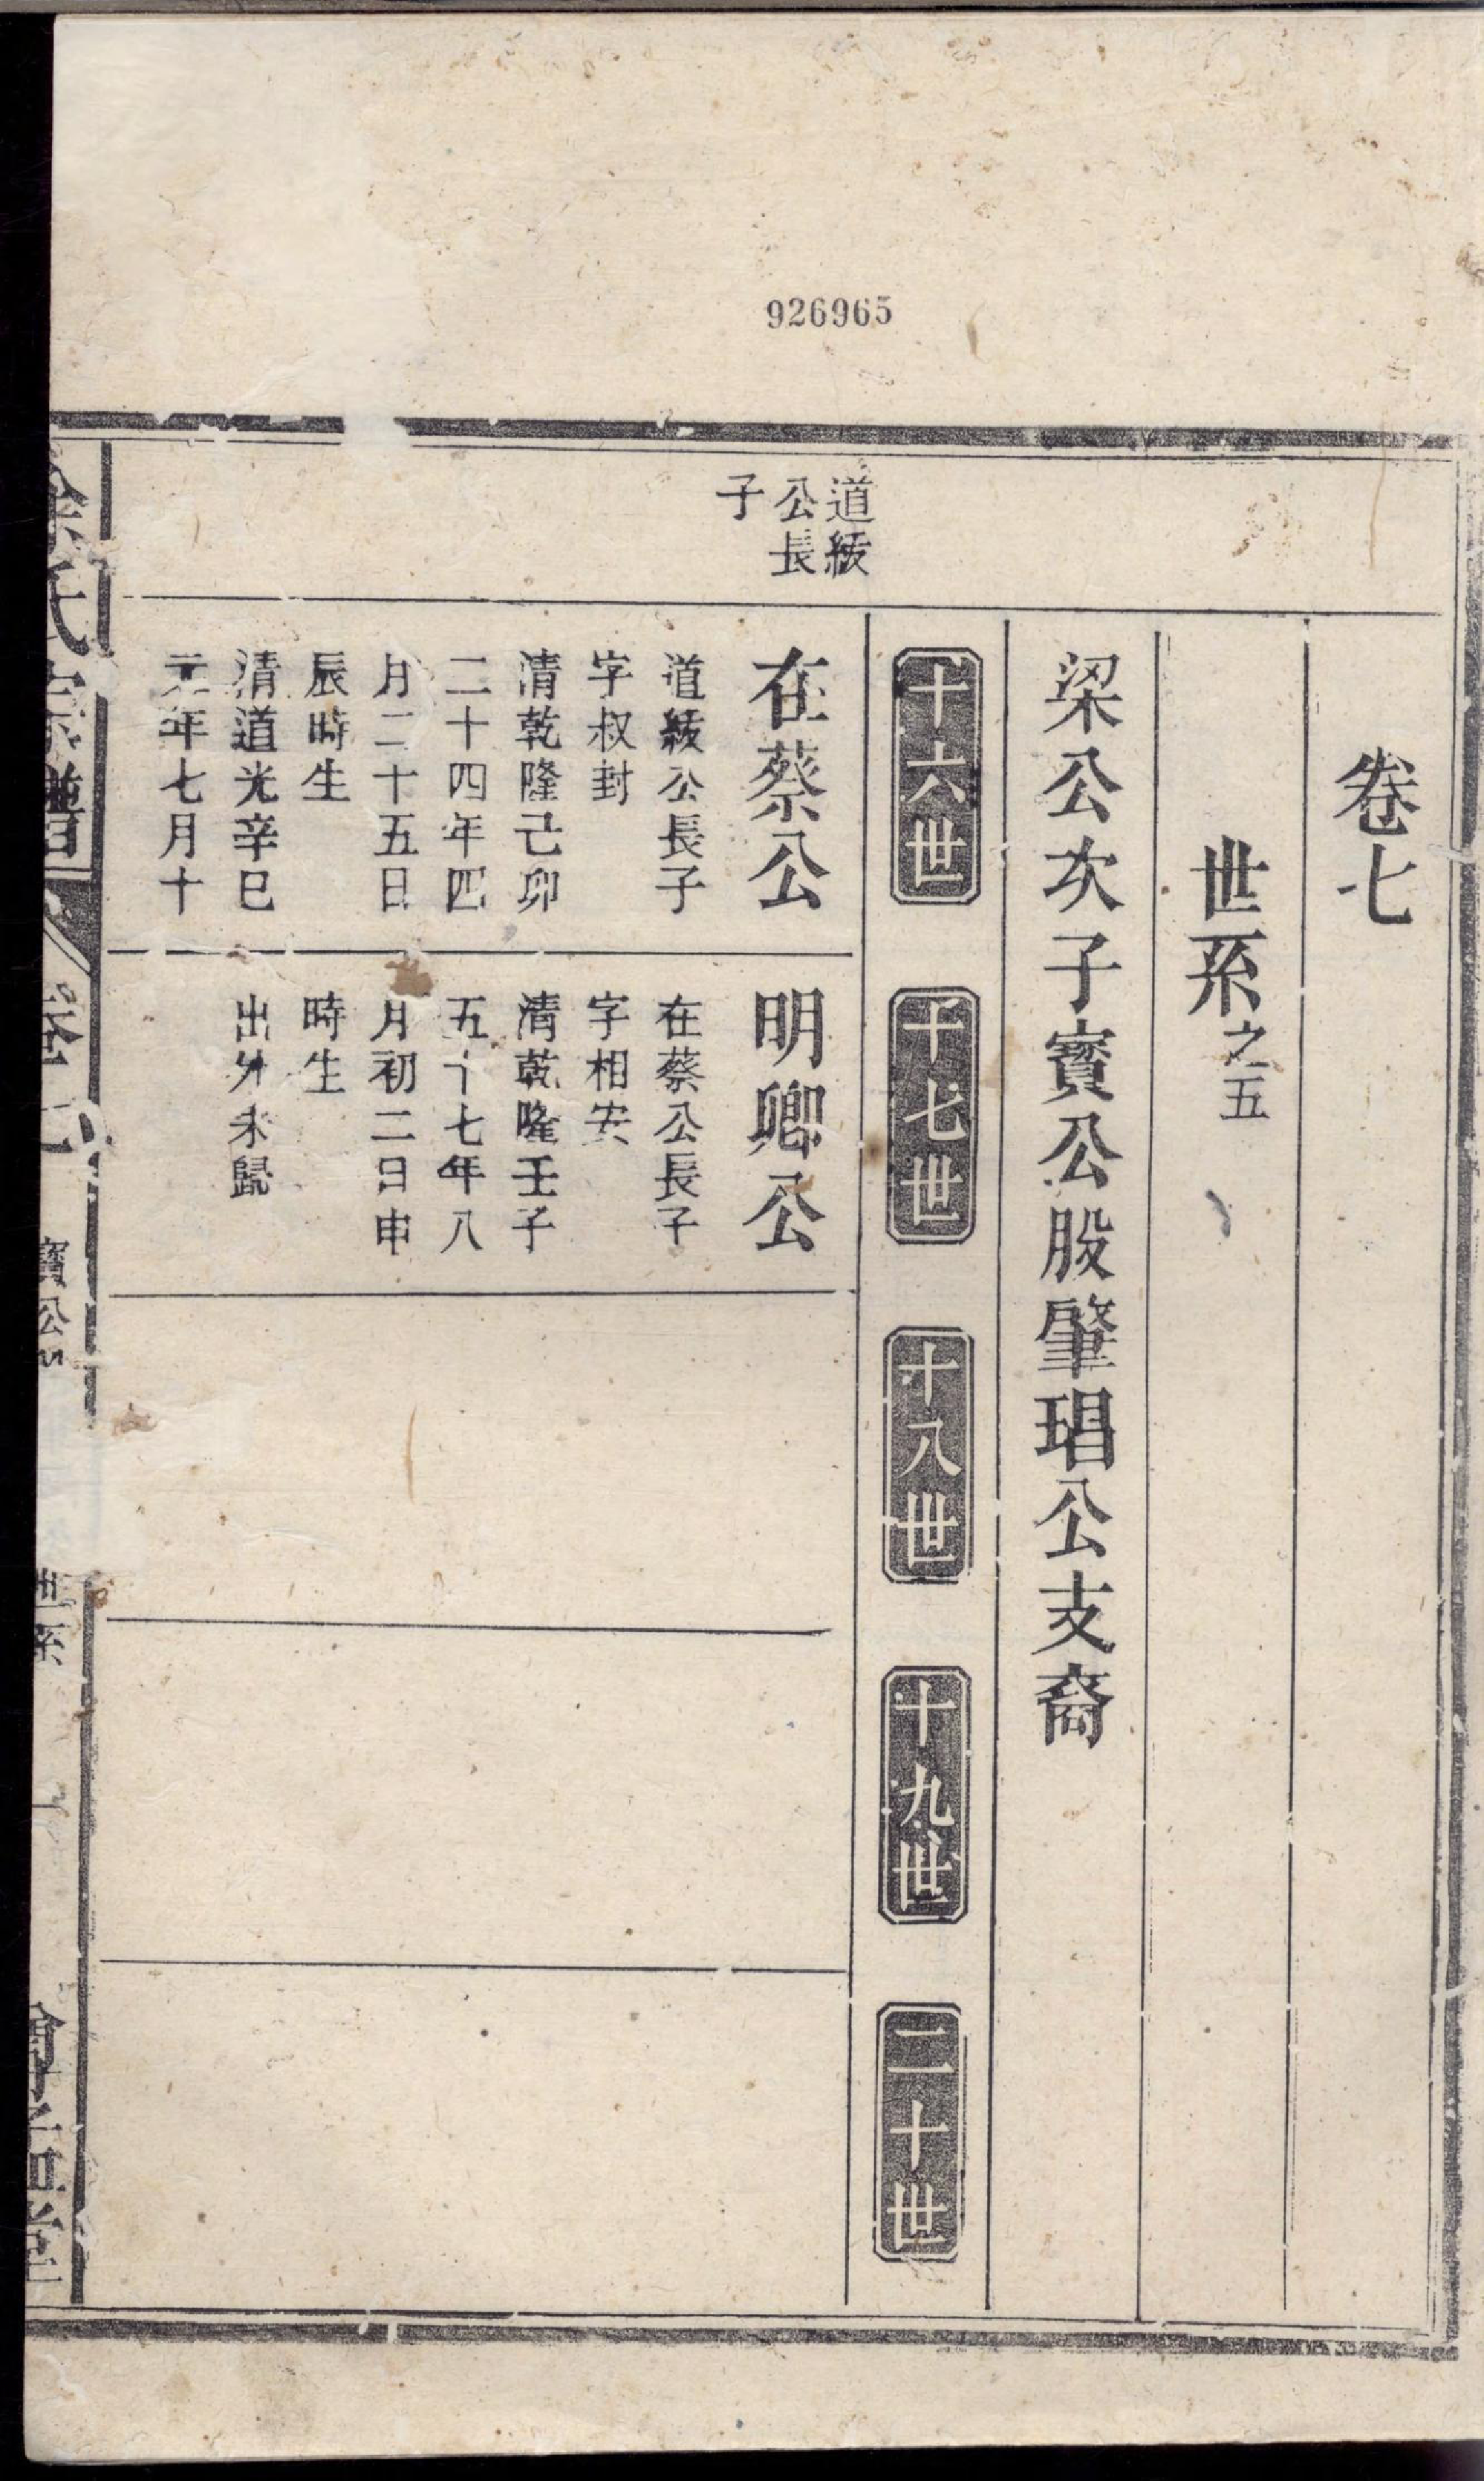 926965
卷七
世系之五
梁公次子寳公股肇琩公支裔
十六世
十七世
十八世
十九世
二十世
道綏
公長
子
在蔡公
道綏公長子
字叔封
清乾隆己卯
二十四年四
月二十五日
辰時生
清道光辛巳
元年七月十
明卿公
在蔡公長子
字相安
清乾隆壬子
五十七年八
月初二日申
時生
出外未歸
徐氏宗譜
卷七
寳公
世系